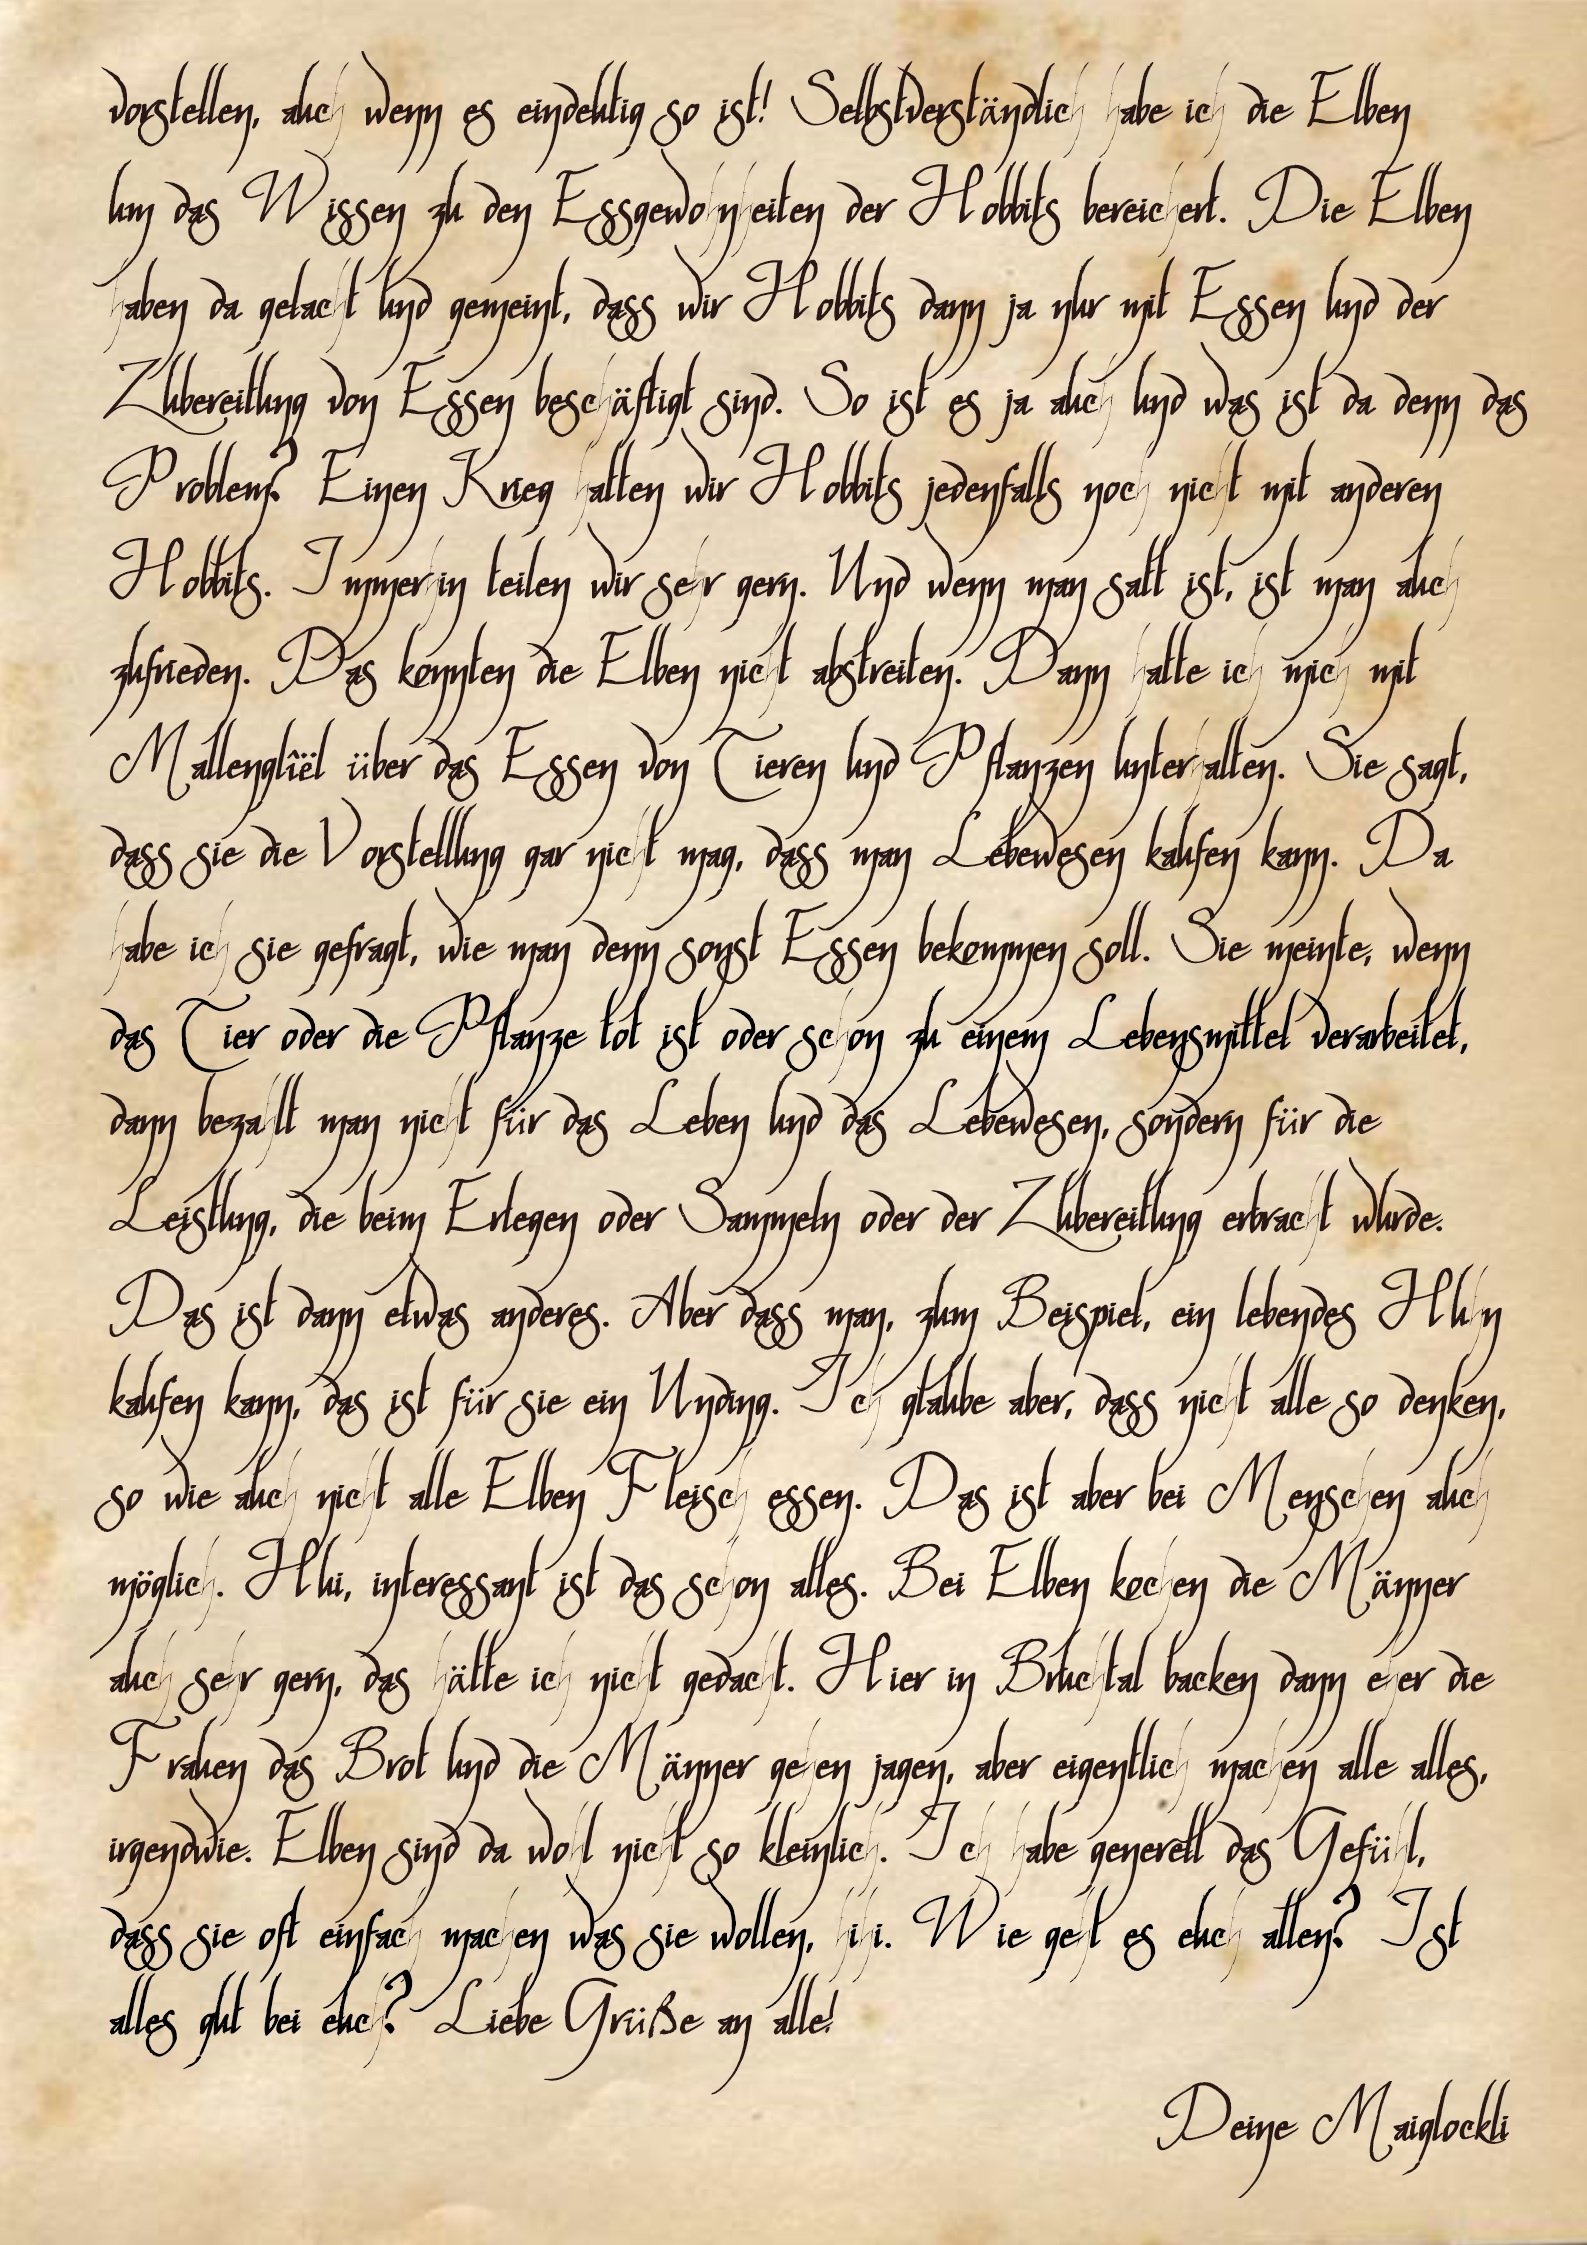 vorstellen, auch wenn es eindeutig so ist! Selbstverständlich habe ich die Elben
um das Wissen zu den Essgewohnheiten der Hobbits bereichert. Die Elben
haben da gelacht und gemeint, dass wir Hobbits dann ja nur mit Essen und der
Zubereitung von Essen beschäftigt sind. So ist es ja auch und was ist da denn das
Problem? Einen Krieg hatten wir Hobbits jedenfalls noch nicht mit anderen
Hobbits. Immerhin teilen wir sehr gern. Und wenn man satt ist, ist man auch
zufrieden. Das konnten die Elben nicht abstreiten. Dann hatte ich mich mit
Mallenglîël über das Essen von Tieren und Pflanzen unterhalten. Sie sagt,
dass sie die Vorstelllung gar nicht mag, dass man Lebewesen kaufen kann. Da
habe ich sie gefragt, wie man denn sonst Essen bekommen soll. Sie meinte, wenn
das Tier oder die Pflanze tot ist oder schon zu einem Lebensmittel verarbeitet,
dann bezahlt man nicht für das Leben und das Lebewesen, sondern für die
Leistung, die beim Erlegen oder Sammeln oder der Zubereitung erbracht wurde.
Das ist dann etwas anderes. Aber dass man, zum Beispiel, ein lebendes Huhn
kaufen kann, das ist für sie ein Unding. Ich glaube aber, dass nicht alle so denken,
so wie auch nicht alle Elben Fleisch essen. Das ist aber bei Menschen auch
möglich. Hui, interessant ist das schon alles. Bei Elben kochen die Männer
auch sehr gern, das hätte ich nicht gedacht. Hier in Bruchtal backen dann eher die
Frauen das Brot und die Männer gehen jagen, aber eigentlich machen alle alles,
irgendwie. Elben sind da wohl nicht so kleinlich. Ich habe generell das Gefühl,
dass sie oft einfach machen was sie wollen, hihi. Wie geht es euch allen? Ist
alles gut bei euch? Liebe Grüße an alle!
Deine Maiglockli